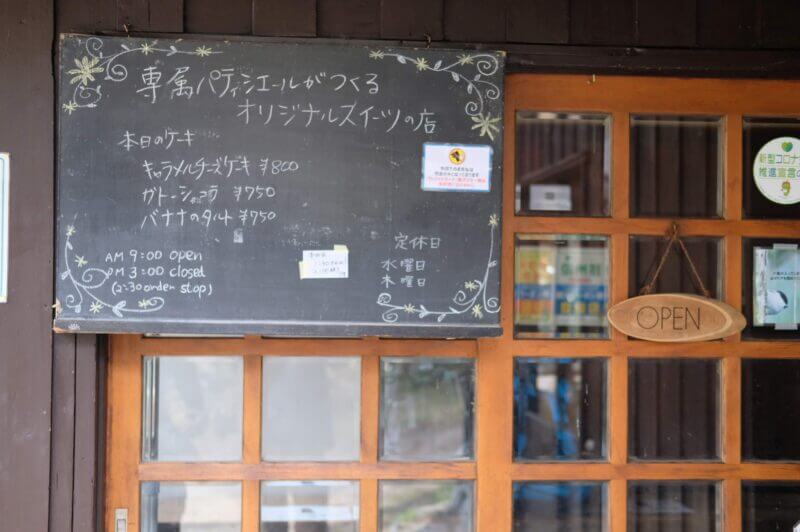 専属パティシエールがつくる
オリジナルスイーツの店
本日のケーキ
キャラメルチーズケーキ ¥800
ガトーショコラ ¥750
バナナのタルト ¥750
AM 9:00 open
PM 3:00 closed
(2:30 order stop)
定休日
水曜日
木曜日
OPEN
新型コロナ
推進宣言の